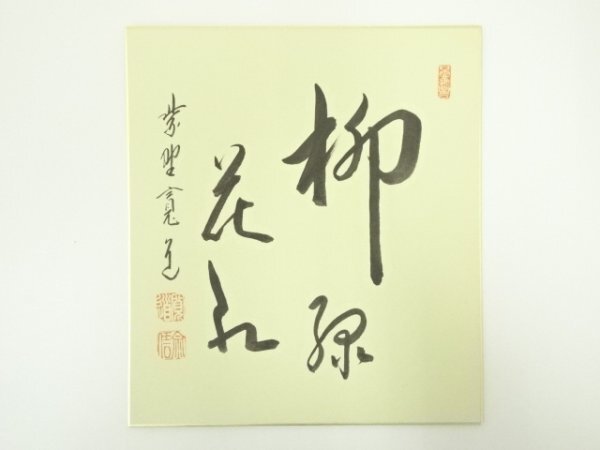 柳緑
花紅
紫野寛道